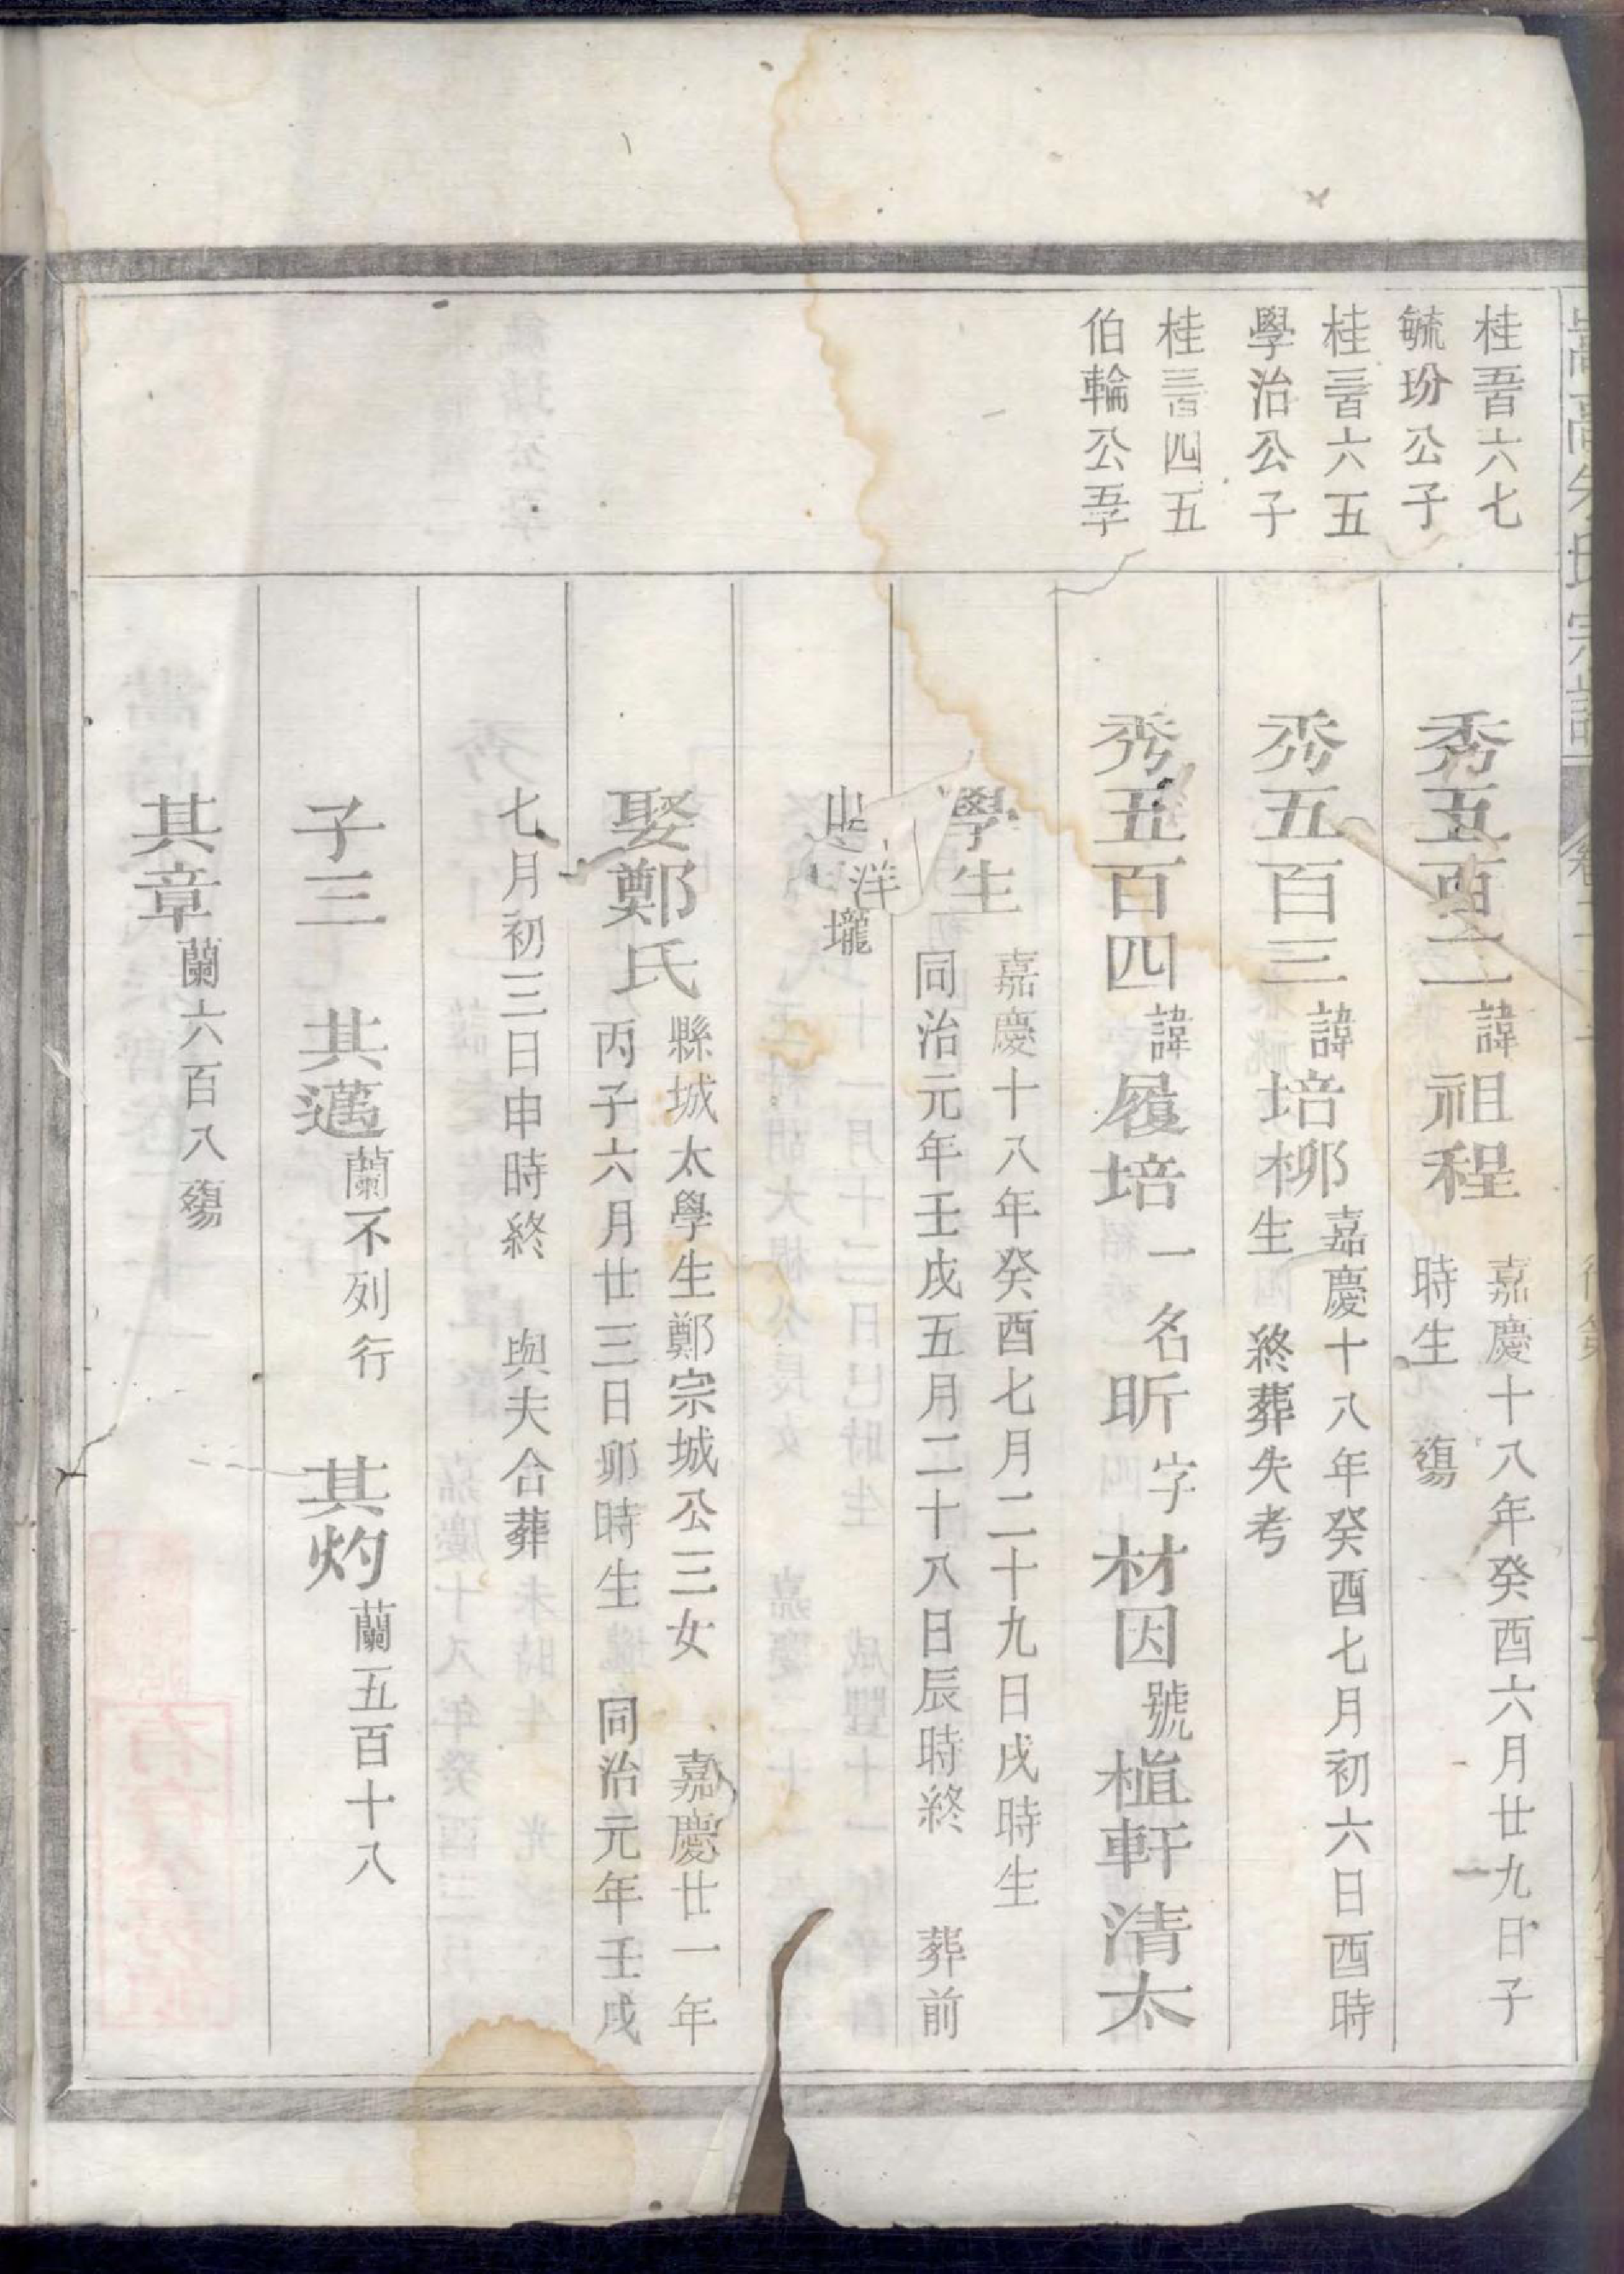 桂五百六七
毓玢公子
桂三百六五
學治公子
桂三百四五
伯輪公五子
秀五百二 諱祖程 嘉慶十八年癸酉六月廿九日子
時生 殤
秀五百三 諱培柳 嘉慶十八年癸酉七月初六日酉時
生 終葬失考
秀五百四 諱履培 一名昕 字材因 號植軒 清太
學生 嘉慶十八年癸酉七月二十九日戌時生
同治元年壬戌五月二十八日辰時終 葬前
山 洋壠
娶鄭氏 縣城太學生鄭宗城公三女 嘉慶廿一年
丙子六月廿三日卯時生 同治元年壬戌
七月初三日申時終 與夫合葬
子三 其邁 蘭不列行 其灼 蘭五百十八
其章 蘭六百八殤